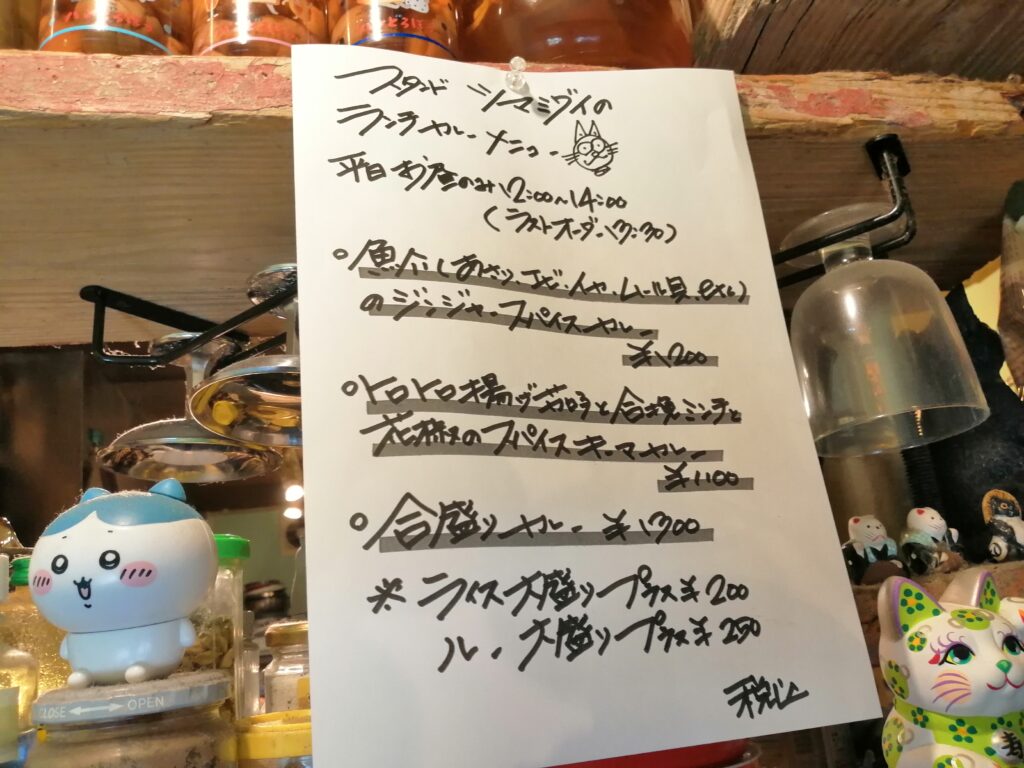 スタンド シマミヴイの
ランチカレーメニュー
平日お昼のみ 12:00〜14:00
(ラストオーダー13:30)
○魚介(あさり、エビ、イカ、ムール貝、etc)
のジンジャースパイスカレー
¥1200
○トロトロ揚げ茄子と合挽ミンチと
花椒のスパイスキーマカレー
¥1100
○合盛りカレー ¥1300
※ライス大盛りプラス¥200
ルー大盛りプラス¥250
税込
CLOSE ←→ OPEN